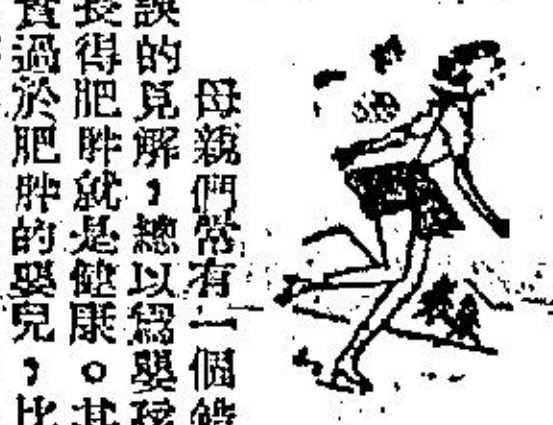 母親們常有一個錯
誤的見解，總以爲嬰孩
長得肥胖就是健康。其
實過於肥胖的嬰兒，比